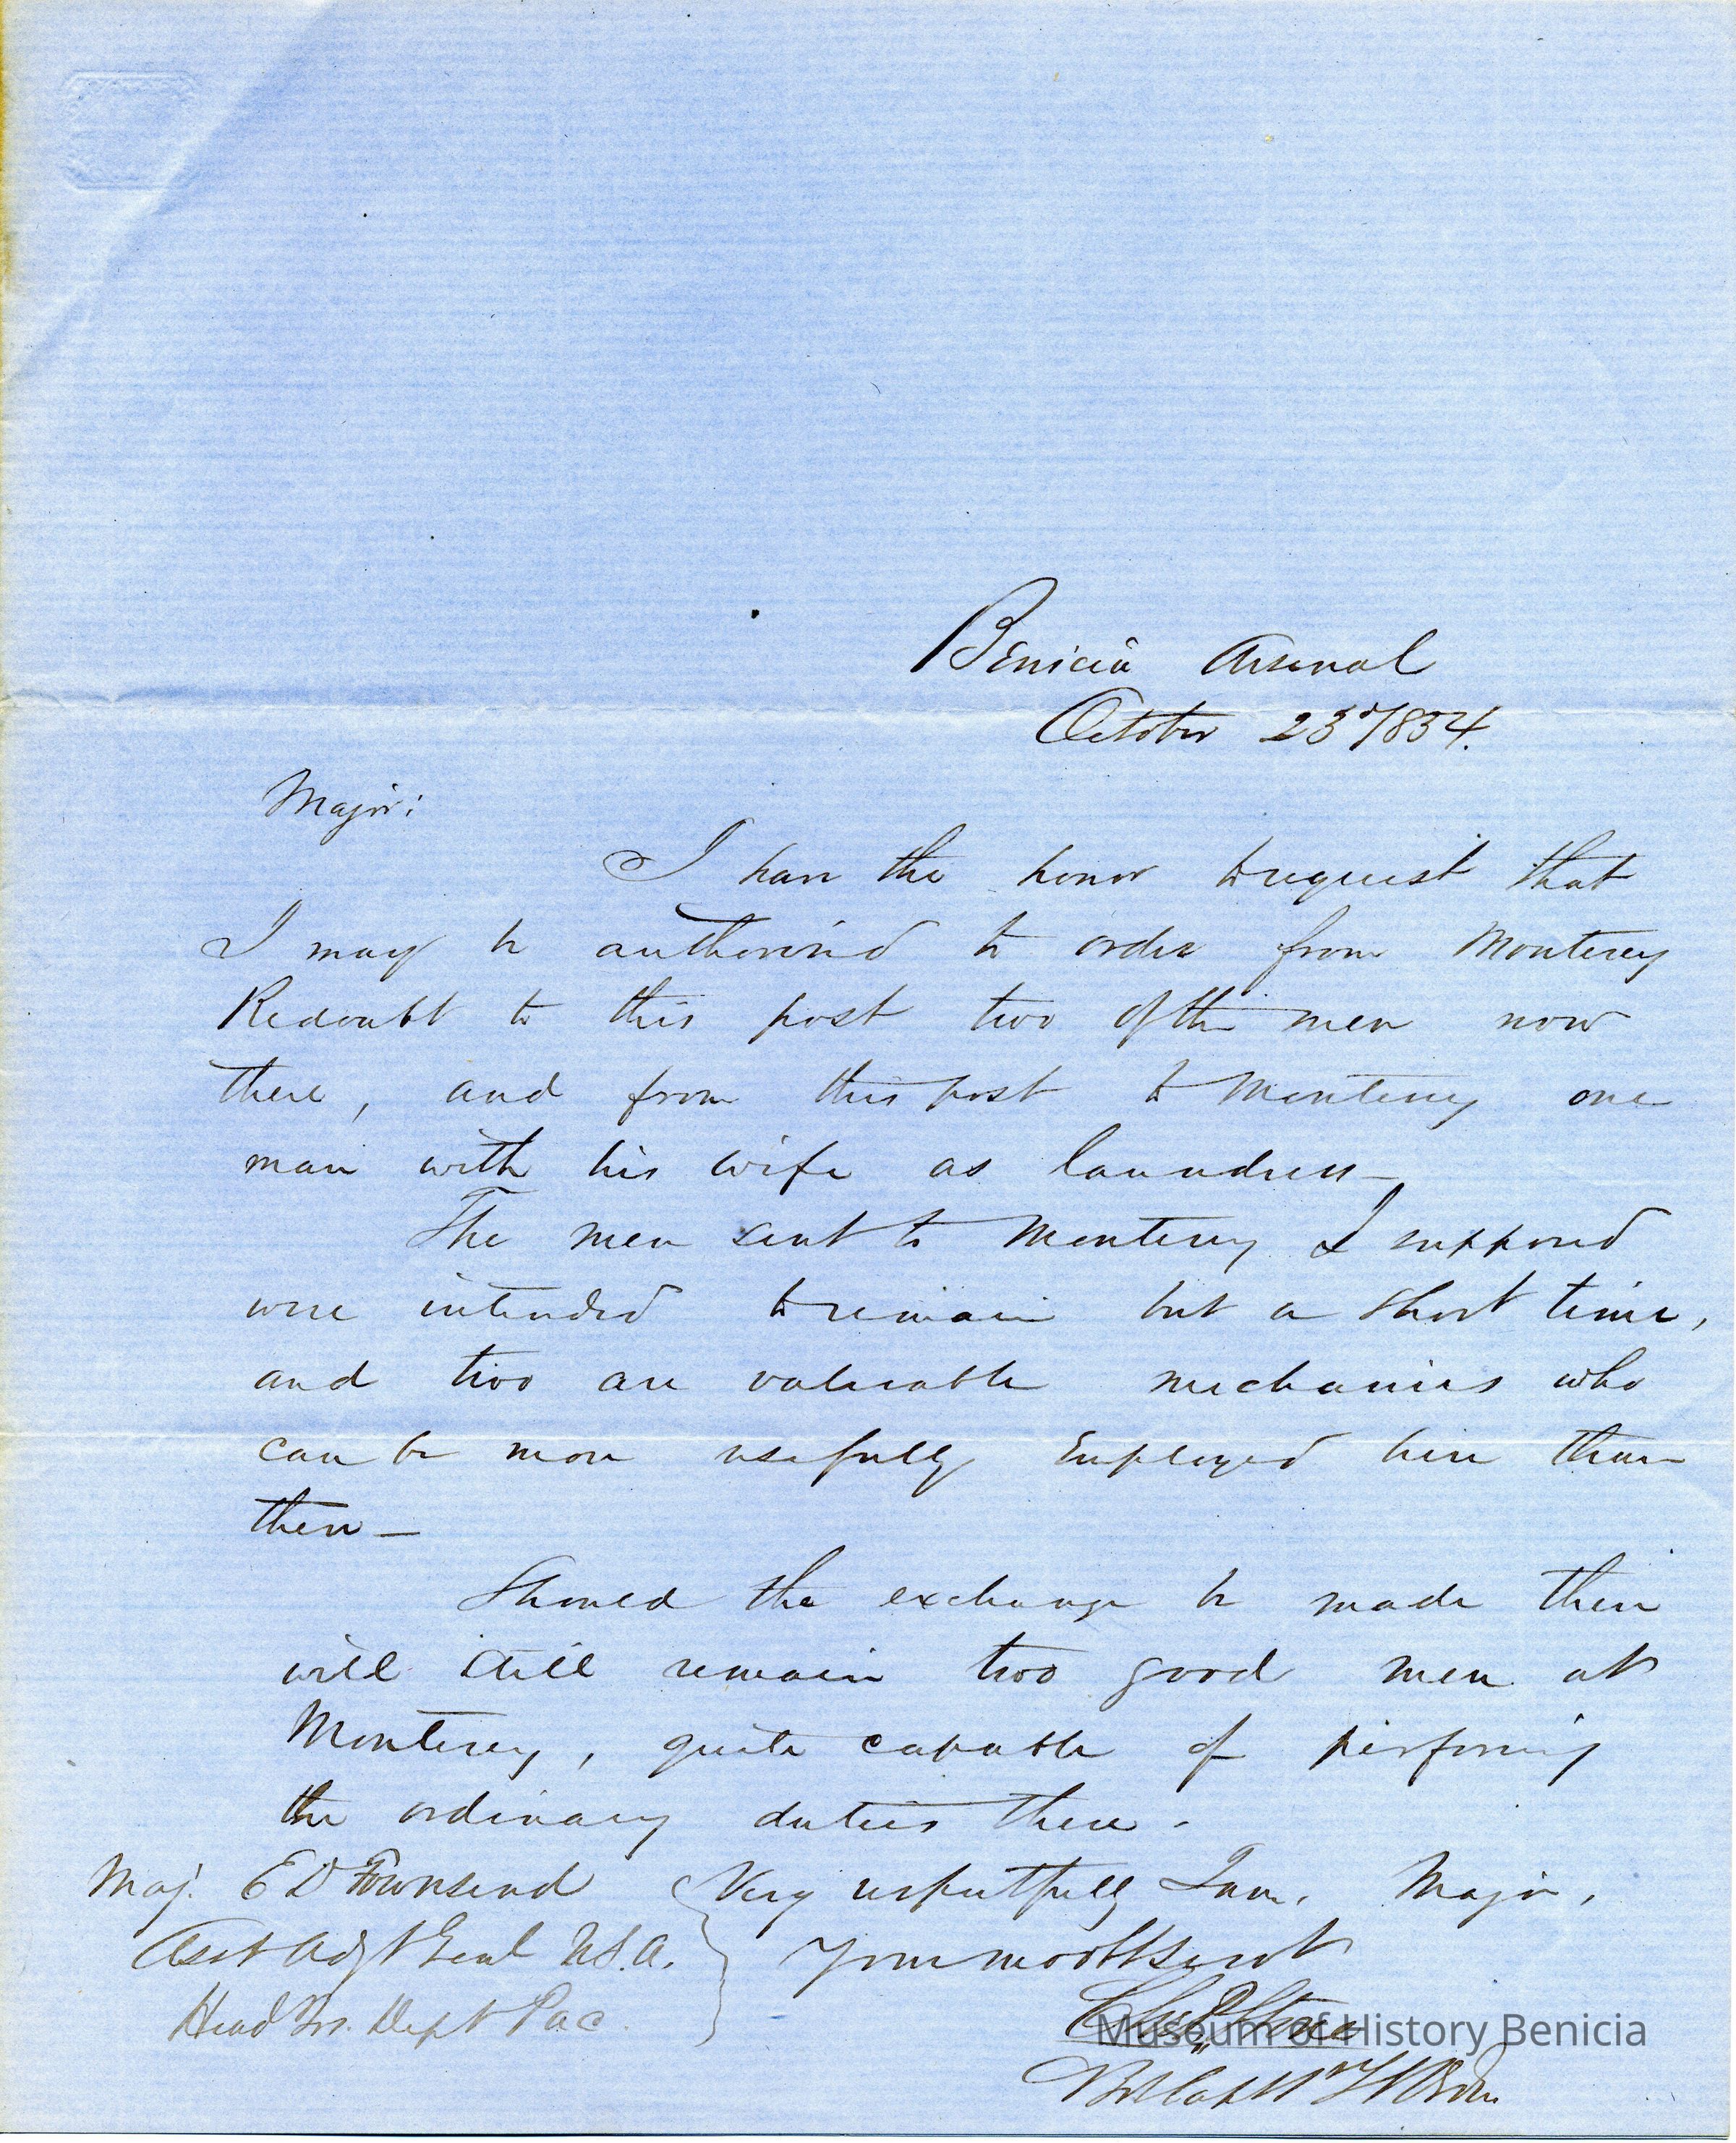 Benicia Arsenal
October 23d 1854.
Major:
I have the honor to request that
I may be authorized to order from Monterey
Redoubt to this post two of the men now
there, and from this post to Monterey one
man with his wife as laundress—
The men sent to Monterey I supposed
were intended to remain but a short time,
and two are valuable mechanics who
can be more usefully employed here than
there—
Should the exchange be made there
will still remain two good men at
Monterey, quite capable of performing
the ordinary duties there.
Maj. E D Townsend
Asst Adjt Genl U.S.A.
Head Qrs. Dept Pac.
Very respectfully I am, Major,
Your mo obt Servt
Chs P Stone
Bvt Capt Ord
Museum of History Benicia